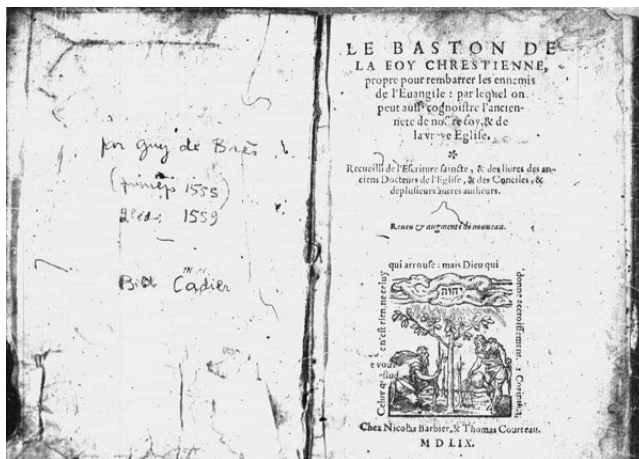 par Guy de Brès
(princeps 1555)
2e éd. 1559
Bibl. Cadier
LE BASTON DE
LA FOY CHRESTIENNE,
propre pour rembarrer les ennemis
de l'Euangile : par lequel on
peut aussi cognoistre l'ancien-
neté de nostre foy, & de
la vraye Eglise.
*
Recueilli de l'Escriture saincte, & des liures des an-
ciens Docteurs de l'Eglise, & des Conciles, &
de plusieurs autres autheurs.
Reueu & augmenté de nouueau.
qui arrouse : mais Dieu qui
donne accroissement. 1 Corinth. 3.
n'est rien, ne celuy
יהוה
Chez Nicolas Barbier, & Thomas Courteau.
M D LIX.